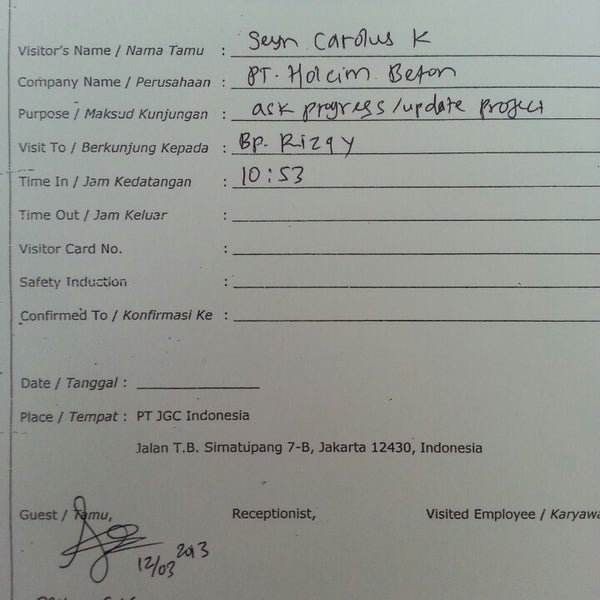 Visitor's Name / Nama Tamu : Seyn Carolus K
Company Name / Perusahaan : PT. Holcim Beton
Purpose / Maksud Kunjungan : ask progress/update project
Visit To / Berkunjung Kepada : Bp. Rizqy
Time In / Jam Kedatangan : 10:53
Time Out / Jam Keluar :
Visitor Card No. :
Safety Induction :
Confirmed To / Konfirmasi Ke :
Date / Tanggal :
Place / Tempat : PT JGC Indonesia
Jalan T.B. Simatupang 7-B, Jakarta 12430, Indonesia
Guest / Tamu, Receptionist, Visited Employee / Karyawa
12/03 2013